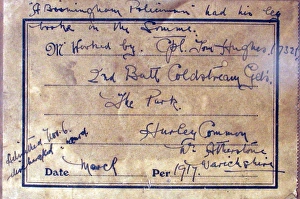 A Birmingham Policeman had his leg
broke on the Somme.
Worked by. Cpl. Tom Hughes.
2nd Batt Coldstream Gds.
The Park.
Hurley Common
Nr Atherstone
Warickshire
Date March Per 1917.